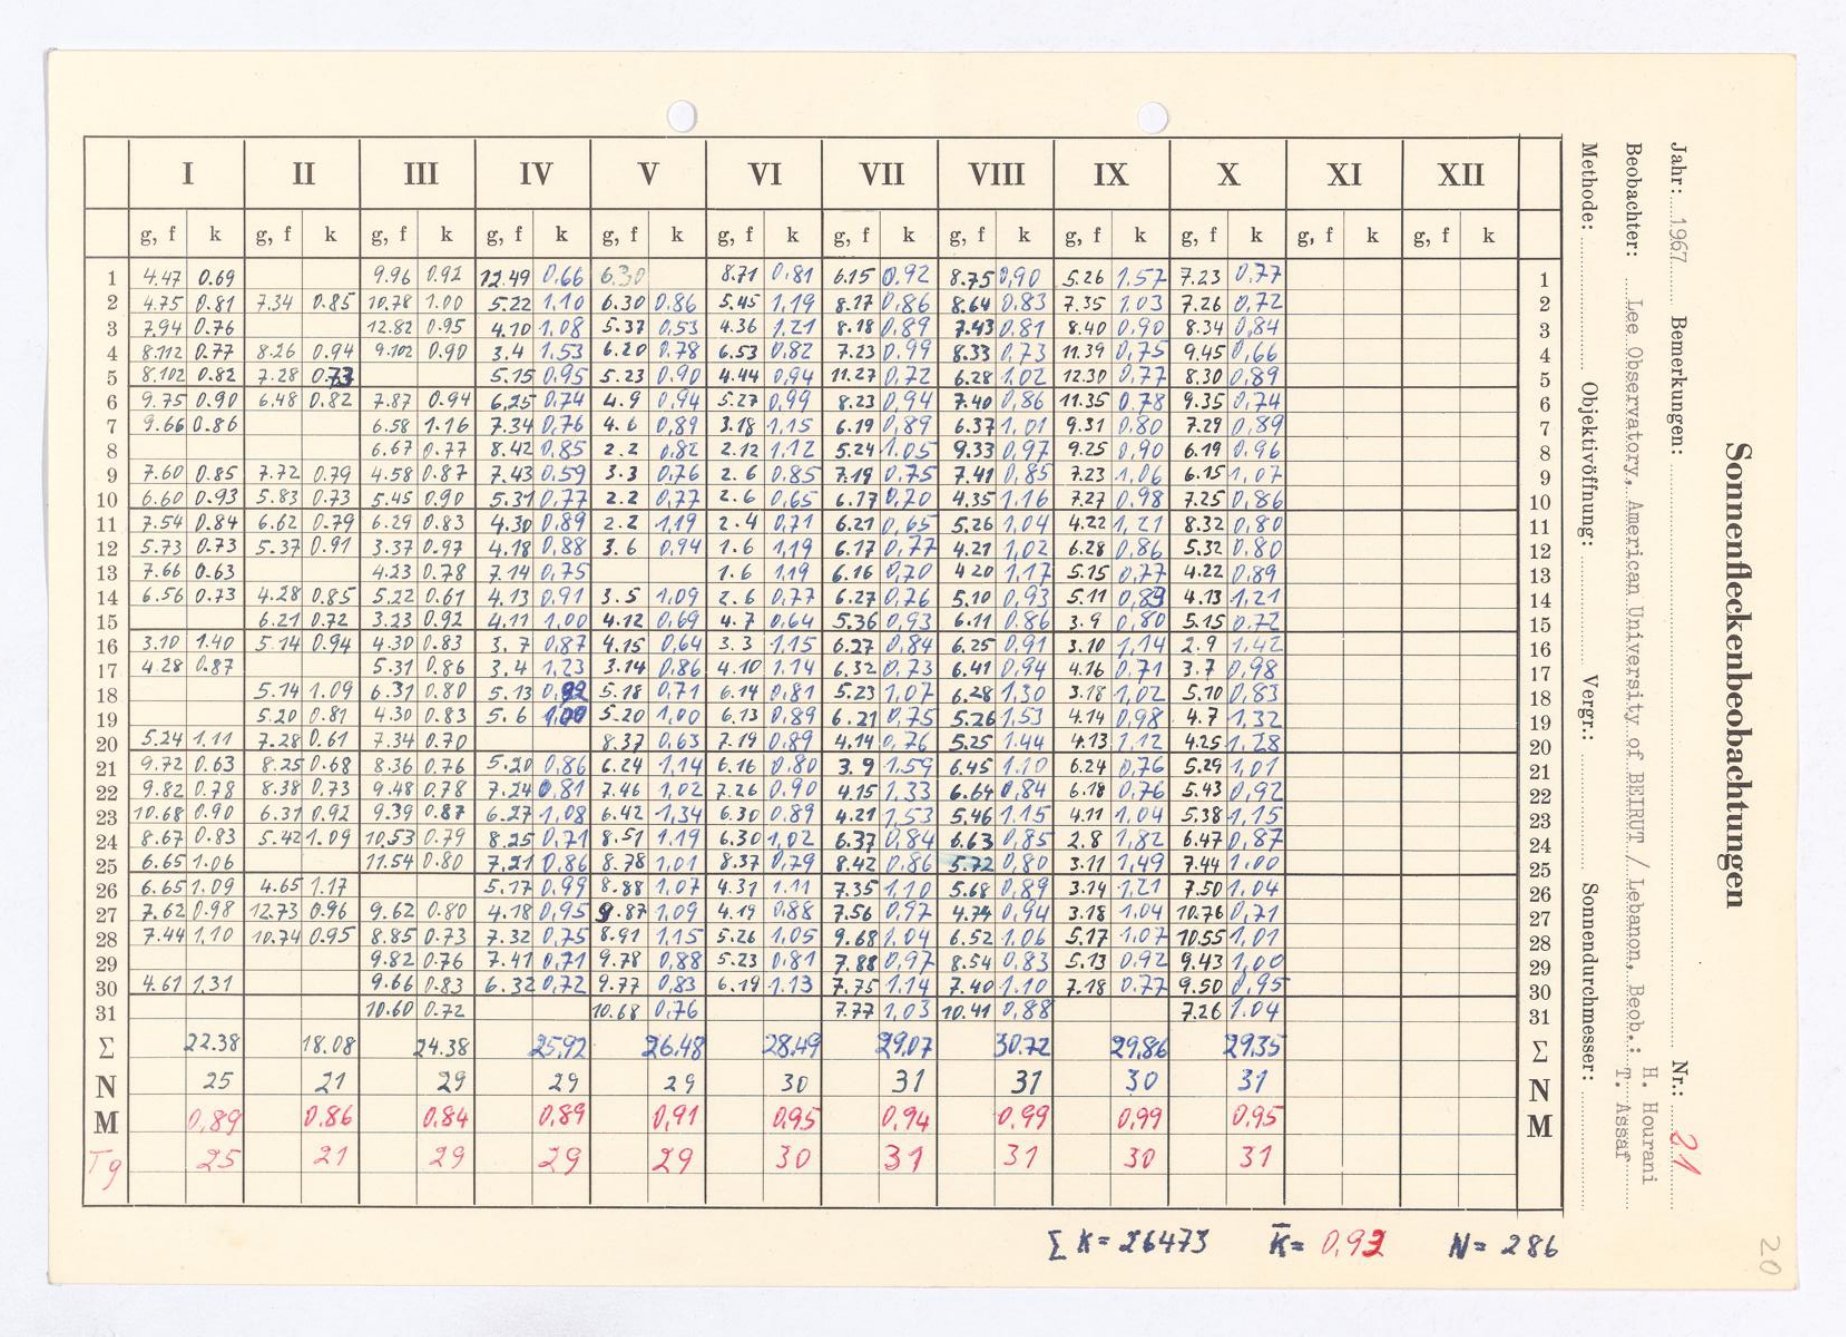 Sonnenfleckenbeobachtungen
Jahr: 1967 Bemerkungen: Nr.: 21
Beobachter: Lee Observatory, American University of BEIRUT / Lebanon, Beob.: H. Hourani
T. Assaf
Methode: Objektivöffnung: Vergr.: Sonnendurchmesser:
I II III IV V VI VII VIII IX X XI XII
g, f k g, f k g, f k g, f k g, f k g, f k g, f k g, f k g, f k g, f k g, f k g, f k
1 4.47 0.69 9.96 0.92 12.49 0,66 6.30 8.71 0,81 6.15 0,92 8.75 0,90 5.26 1,57 7.23 0,77 1
2 4.75 0.81 7.34 0.85 10.78 1.00 5.22 1,10 6.30 0,86 5.45 1,19 8.17 0,86 8.64 0,83 7.35 1,03 7.26 0,72 2
3 7.94 0.76 12.82 0.95 4.10 1,08 5.37 0,53 4.36 1,21 8.18 0,89 7.43 0,81 8.40 0,90 8.34 0,84 3
4 8.112 0.77 8.26 0.94 9.102 0.90 3.4 1,53 6.20 0,78 6.53 0,82 7.23 0,99 8.33 0,73 11.39 0,75 9.45 0,66 4
5 8.102 0.82 7.28 0.73 5.15 0,95 5.23 0,90 4.44 0,94 11.27 0,72 6.28 1,02 12.30 0,77 8.30 0,89 5
6 9.75 0.90 6.48 0.82 7.87 0.94 6.25 0,74 4.9 0,94 5.27 0,99 8.23 0,94 7.40 0,86 11.35 0.78 9.35 0,74 6
7 9.66 0.86 6.58 1.16 7.34 0,76 4.6 0,89 3.18 1,15 6.19 0,89 6.37 1,01 9.31 0,80 7.29 0,89 7
8 6.67 0.77 8.42 0,85 2.2 0,82 2.12 1,12 5.24 1,05 9.33 0,97 9.25 0,90 6.19 0,96 8
9 7.60 0.85 7.72 0.79 4.58 0.87 7.43 0,59 3.3 0,76 2.6 0,85 7.19 0,75 7.41 0,85 7.23 1,06 6.15 1,07 9
10 6.60 0.93 5.83 0.73 5.45 0.90 5.31 0,77 2.2 0,77 2.6 0,65 6.17 0,70 4.35 1.16 7.27 0,98 7.25 0,86 10
11 7.54 0.84 6.62 0.79 6.29 0.83 4.30 0,89 2.2 1,19 2.4 0,71 6.21 0,65 5.26 1,04 4.22 1,21 8.32 0,80 11
12 5.73 0.73 5.37 0.91 3.37 0.97 4.18 0,88 3.6 0,94 1.6 1,19 6.17 0,77 4.21 1,02 6.28 0,86 5.32 0,80 12
13 7.66 0.63 4.23 0.78 7.14 0,75 1.6 1,19 6.16 0,70 4 20 1,17 5.15 0,77 4.22 0,89 13
14 6.56 0.73 4.28 0.85 5.22 0.61 4.13 0,91 3.5 1,09 2.6 0,77 6.27 0,76 5.10 0,93 5.11 0,89 4.13 1,21 14
15 6.21 0.72 3.23 0.92 4.11 1,00 4.12 0,69 4.7 0,64 5.36 0,93 6.11 0.86 3.9 0,80 5.15 0.72 15
16 3.10 1.40 5.14 0.94 4.30 0.83 3.7 0,87 4.15 0,64 3.3 1,15 6.27 0,84 6.25 0,91 3.10 1,14 2.9 1,42 16
17 4.28 0.87 5.31 0.86 3.4 1,23 3.14 0,86 4.10 1.14 6.32 0,73 6.41 0,94 4.16 0,71 3.7 0,98 17
18 5.14 1.09 6.31 0.80 5.13 0,92 5.18 0,71 6.14 0,81 5.23 1,07 6.28 1,30 3.18 1,02 5.10 0,83 18
19 5.20 0.81 4.30 0.83 5.6 1,00 5.20 1,00 6.13 0,89 6.21 0,75 5.26 1,53 4.14 0,98 4.7 1,32 19
20 5.24 1.11 7.28 0.61 7.34 0.70 8.37 0,63 7.19 0,89 4.14 0,76 5.25 1.44 4.13 1,12 4.25 1,28 20
21 9.72 0.63 8.25 0.68 8.36 0.76 5.20 0,86 6.24 1,14 6.16 0,80 3.9 1,59 6.45 1.10 6.24 0,76 5.29 1,01 21
22 9.82 0.78 8.38 0.73 9.48 0.78 7.24 0,81 7.46 1,02 7.26 0,90 4.15 1,33 6.64 0,84 6.18 0,76 5.43 0,92 22
23 10.68 0.90 6.31 0.92 9.39 0.87 6.27 1,08 6.42 1,34 6.30 0,89 4.21 1,53 5.46 1.15 4.11 1,04 5.38 1,15 23
24 8.67 0.83 5.42 1.09 10.53 0.79 8.25 0,71 8.51 1.19 6.30 1,02 6.37 0,84 6.63 0,85 2.8 1,82 6.47 0,87 24
25 6.65 1.06 11.54 0.80 7.21 0,86 8.78 1,01 8.37 0,79 8.42 0,86 5.72 0,80 3.11 1,49 7.44 1.00 25
26 6.65 1.09 4.65 1.17 5.17 0,99 8.88 1,07 4.31 1.11 7.35 1,10 5.68 0,89 3.14 1,21 7.50 1,04 26
27 7.62 0.98 12.73 0.96 9.62 0.80 4.18 0,95 9.87 1,09 4.19 0,88 7.56 0,97 4.74 0,94 3.18 1,04 10.76 0,71 27
28 7.44 1,10 10.74 0.95 8.85 0.73 7.32 0,75 8.91 1,15 5.26 1,05 9.68 1,04 6.52 1,06 5.17 1,07 10.55 1,01 28
29 9.82 0.76 7.41 0,71 9.78 0,88 5.23 0.81 7.88 0,97 8.54 0,83 5.13 0.92 9.43 1,00 29
30 4.61 1.31 9.66 0.83 6.32 0,72 9.77 0,83 6.19 1.13 7.75 1.14 7.40 1.10 7.18 0.77 9.50 0,95 30
31 10.60 0.72 10.68 0,76 7.77 1,03 10.41 0,88 7.26 1.04 31
Σ 22.38 18.08 24.38 25,92 26,48 28,49 29,07 30.72 29,86 29,35 Σ
N 25 21 29 29 29 30 31 31 30 31 N
M 0,89 0.86 0,84 0,89 0,91 0,95 0,94 0,99 0,99 0,95 M
Tg 25 21 29 29 29 30 31 31 30 31
Σ K = 26473 K̄ = 0,93 N = 286
20